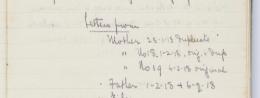 Letters from
Mother 28-1-18 duplicate
" No 18, 1-2-18, orig. & dup
" No 19 6-2-18 original
Father 1-2-18 & 6-2-18